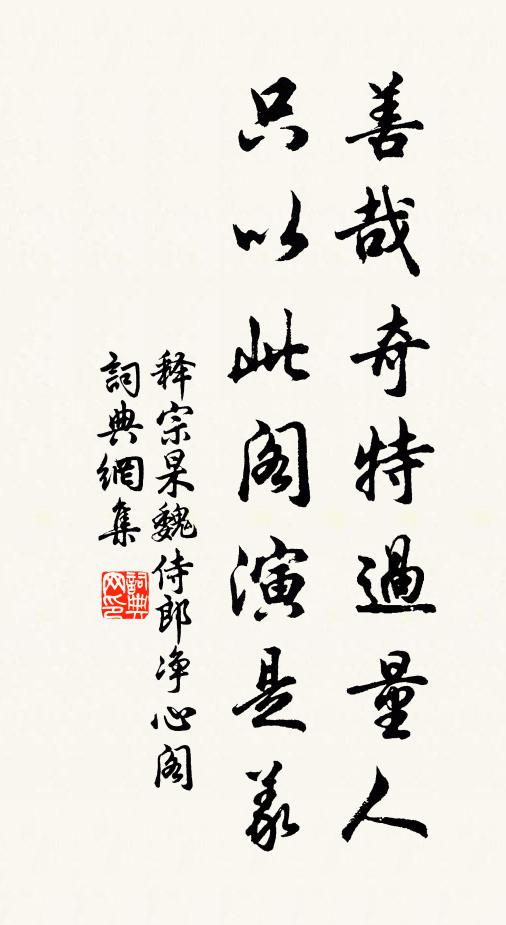 善哉奇特過量人
只以此阁演是義
释宗杲魏侍郎净心阁
詞典網集
詞典网印